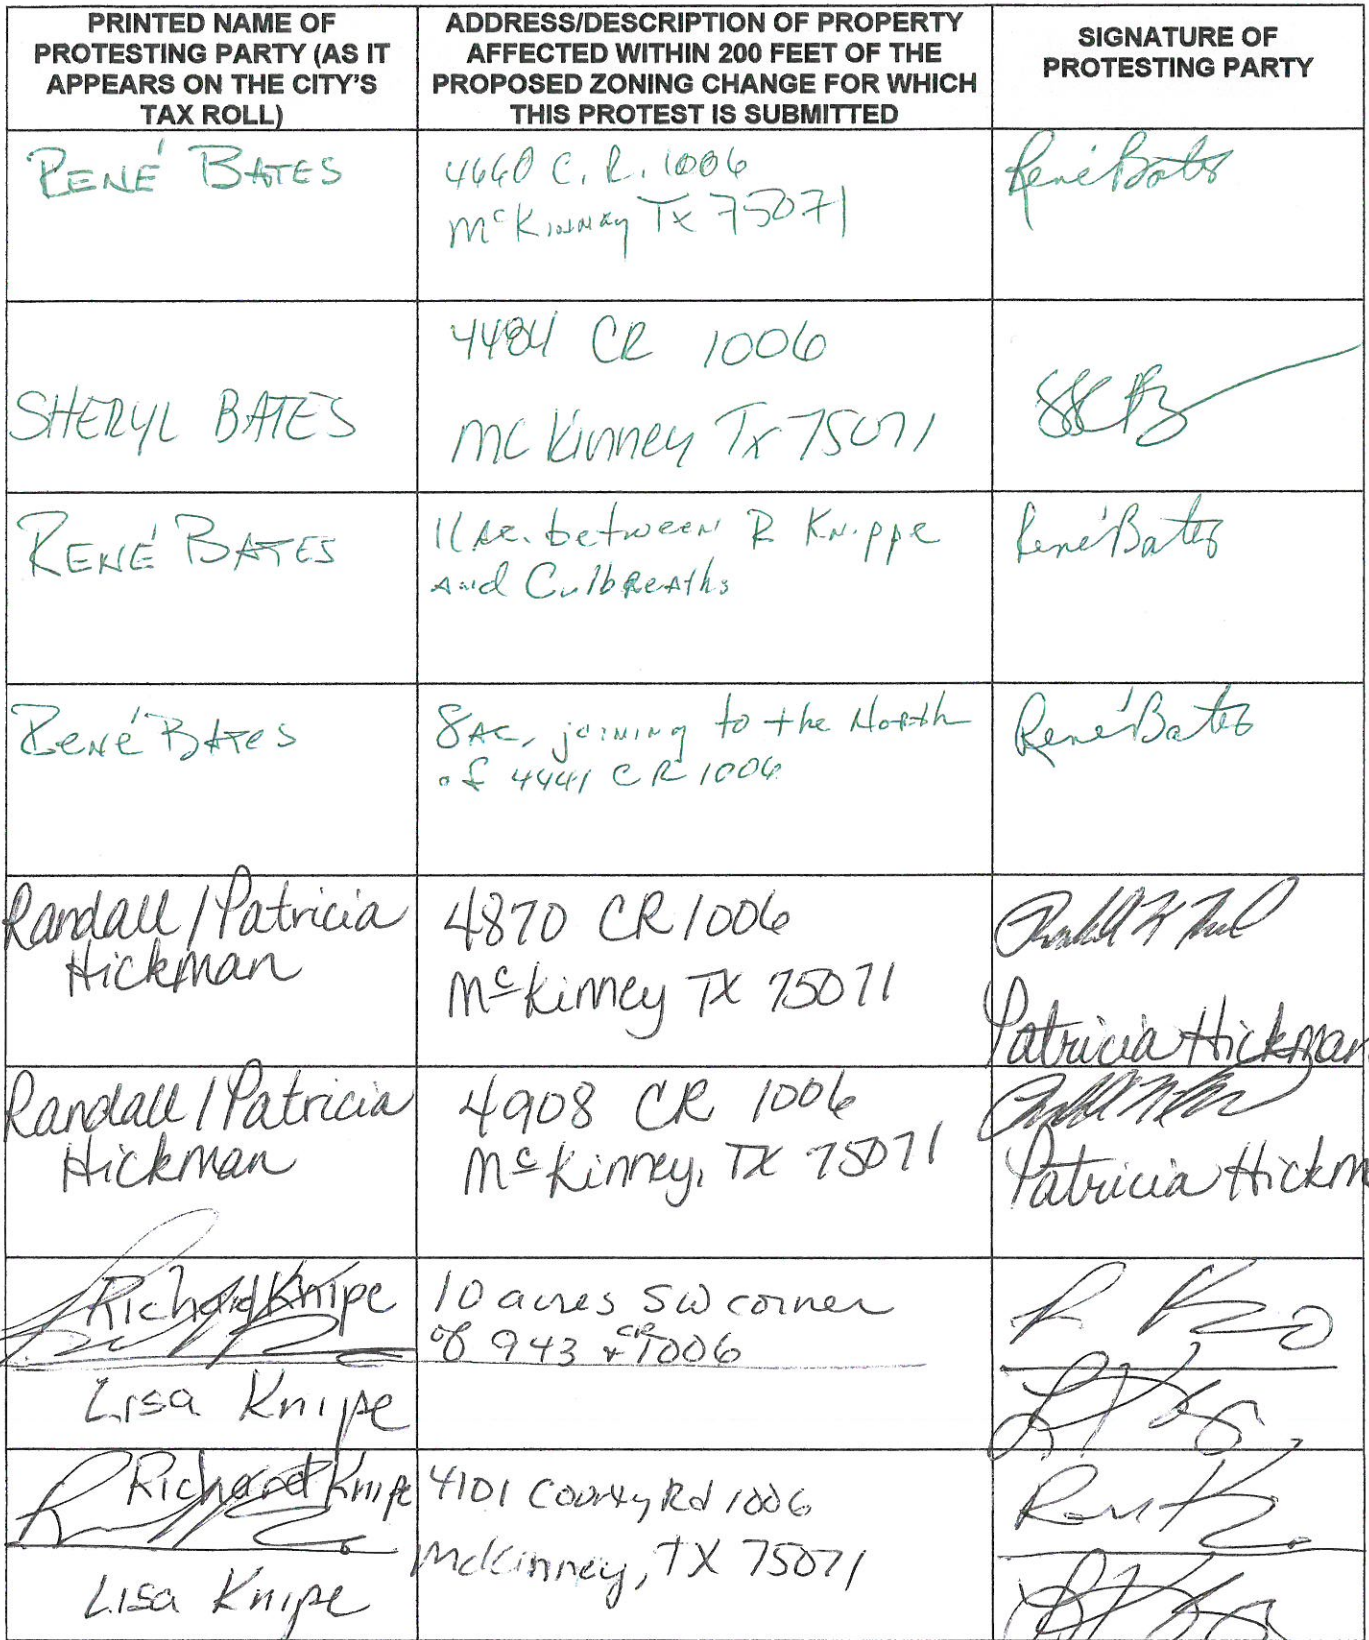 PRINTED NAME OF
PROTESTING PARTY (AS IT
APPEARS ON THE CITY'S
TAX ROLL)
ADDRESS/DESCRIPTION OF PROPERTY
AFFECTED WITHIN 200 FEET OF THE
PROPOSED ZONING CHANGE FOR WHICH
THIS PROTEST IS SUBMITTED
SIGNATURE OF
PROTESTING PARTY
RENÉ BATES
4660 C.R. 1006
McKinney Tx 75071
René Bates
SHERYL BATES
4484 CR 1006
McKinney Tx 75071
RENÉ BATES
11 Ac. between R Knippe
and Culbreaths
René Bates
René Bates
8 Ac, joining to the North
of 4441 CR 1006
René Bates
Randall / Patricia
Hickman
4870 CR 1006
McKinney TX 75071
Patricia Hickman
Randall / Patricia
Hickman
4908 CR 1006
McKinney, TX 75071
Patricia Hickm
Richard Knipe
10 acres SW corner
of 943 + CR 1006
Lisa Knipe
Richard Knipe
4101 County Rd 1006
McKinney, TX 75071
Lisa Knipe